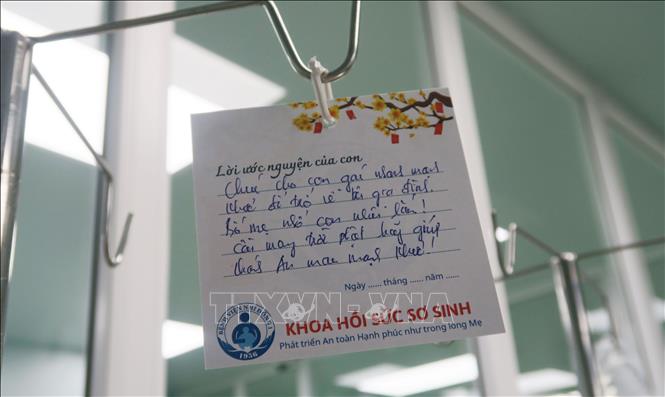 Lời ước nguyện của con
Chúc cho con gái nhanh mạnh
khoẻ để trở về với gia đình.
Bố mẹ nhớ con nhiều lắm!
Cầu mong trời phật hãy giúp
An mau mạnh khoẻ!
Ngày ...... tháng ...... năm ......
BỆNH VIỆN NHI ĐỒNG 1
1956
KHOA HỒI SỨC SƠ SINH
Phát triển An toàn Hạnh phúc như trong lòng Mẹ
TTXVN-VNA